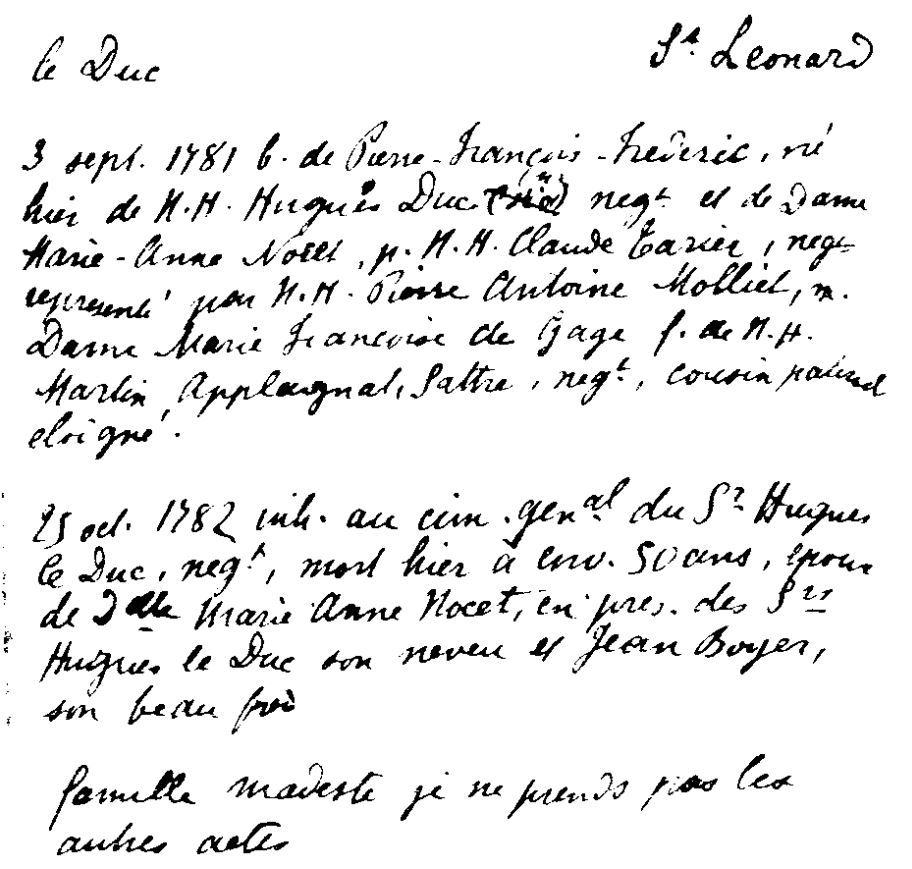 le Duc
St Leonard
3 sept. 1781 b. de Pierre-François-Frédéric, né
hier de H.H. Hugues Duc (sic) negt et de Dame
Marie-Anne Nocet, p. H.H. Claude Tarier, negt
représenté par H.H. Pierre Antoine Molliet, m.
Dame Marie Françoise de Gage f. de H.H.
Martin Applagnat, Sattre, negt, cousin paternel
eloigné.
25 oct. 1782 inh. au cim. genal du Sr Hugues
le Duc, negt, mort hier à env. 50 ans, epoux
de Delle Marie Anne Nocet, en pres. des Srs
Hugues le Duc son neveu et Jean Boyer,
son beau
famille modeste je ne prends pas les
autres actes